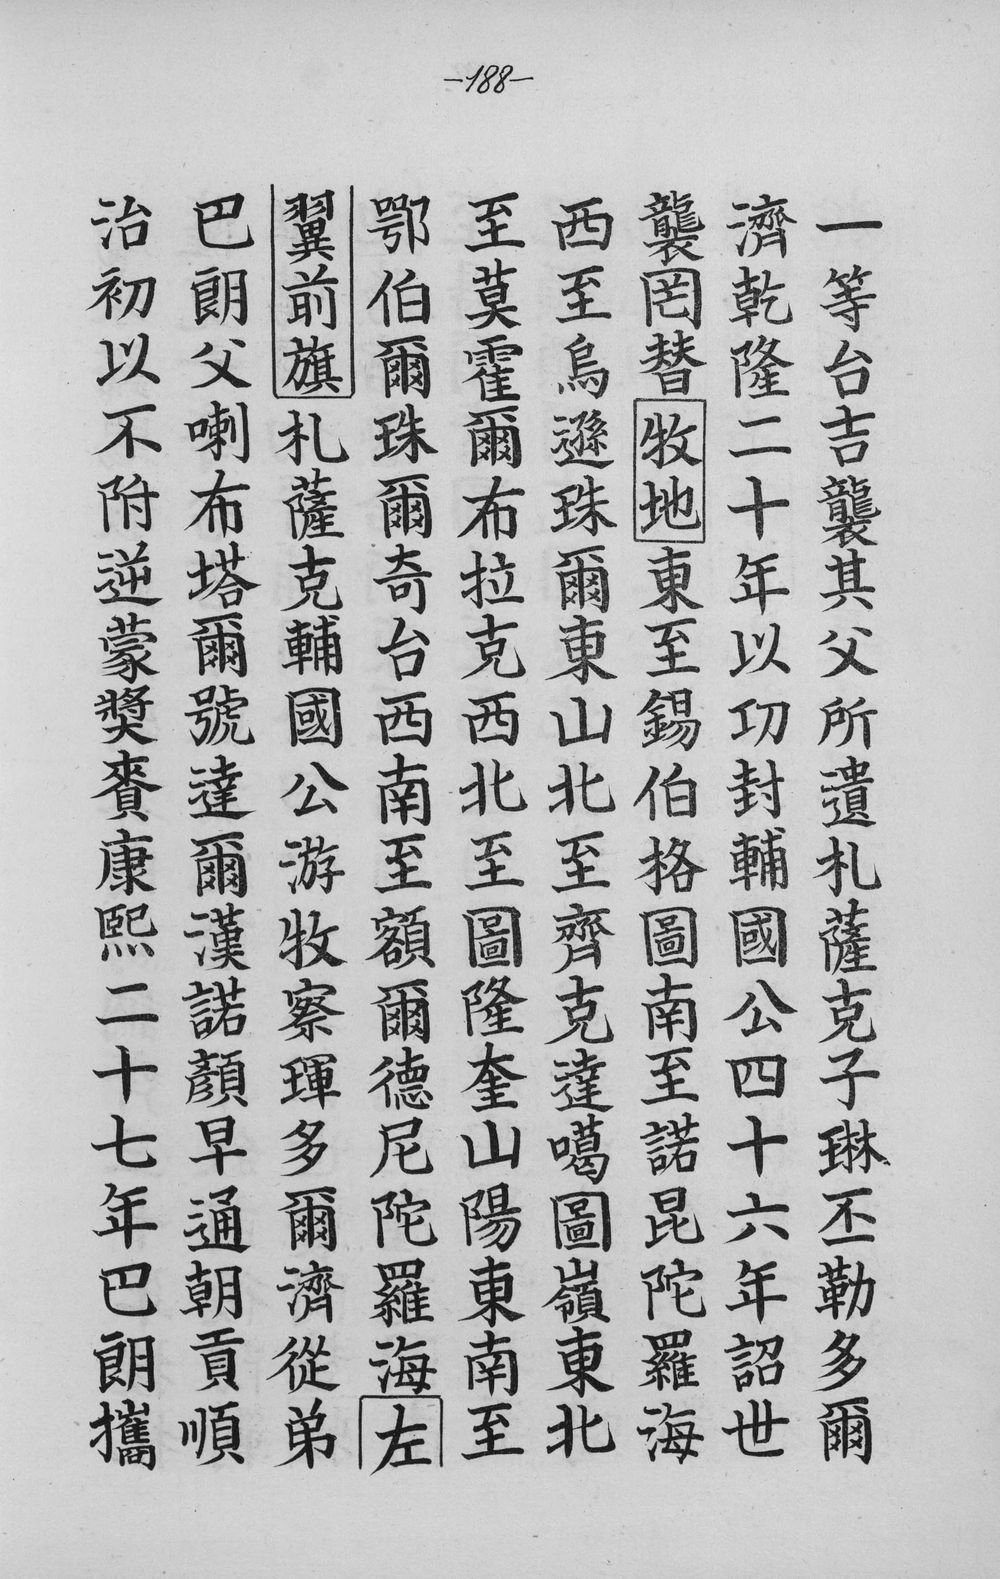 -188-
一等台吉襲其父所遺札薩克子琳丕勒多爾
濟乾隆二十年以功封輔國公四十六年詔世
襲罔替牧地東至錫伯格圖南至諾昆陀羅海
西至烏遜珠爾東山北至齊克達噶圖嶺東北
至莫霍爾布拉克西北至圖隆奎山陽東南至
鄂伯爾珠爾奇台西南至額爾德尼陀羅海左
翼前旗札薩克輔國公游牧察琿多爾濟從弟
巴朗父喇布塔爾號達爾漢諾顏早通朝貢順
治初以不附逆蒙獎賚康熙二十七年巴朗攜